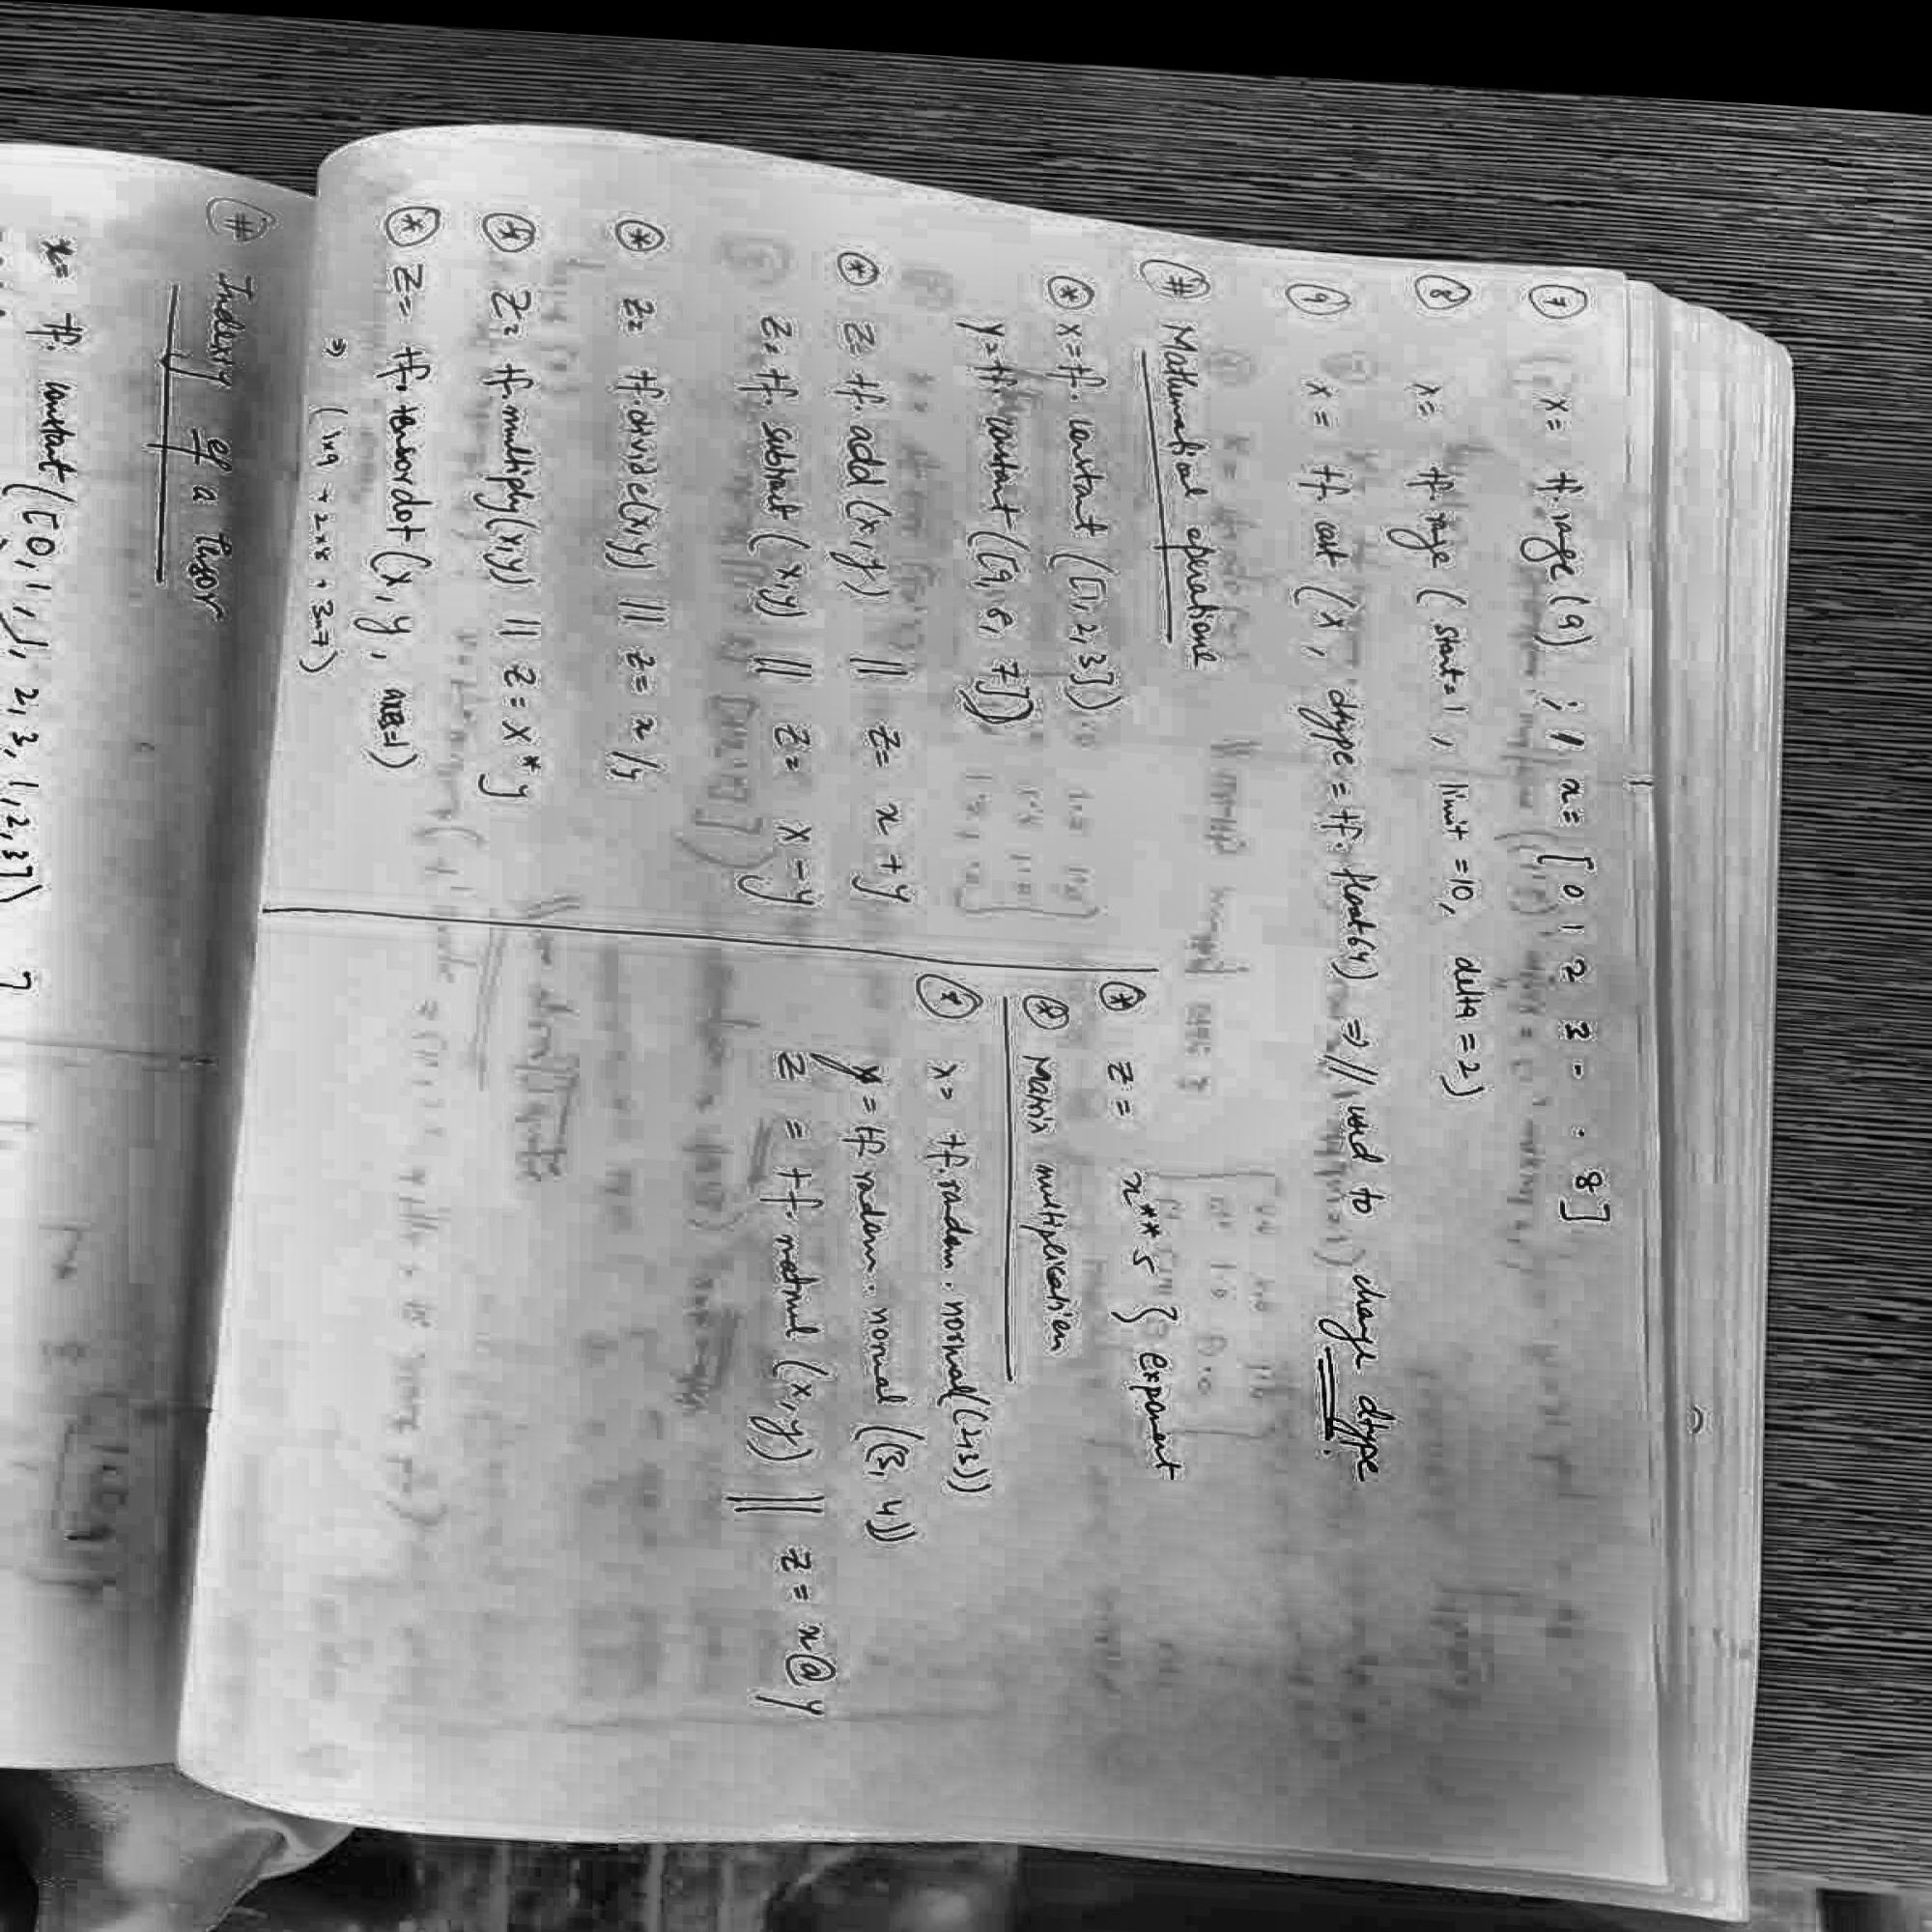 ⑦ x = tf.range(9) ; // x = [0 1 2 3 - . . 8]
⑧ x = tf.range (start=1, limit=10, delta=2)
⑨ x = tf.cast (x, dtype = tf.float64) ⇒ // used to change dtype
# Mathematical operations
* x = tf.constant ([1,2,3])
y = tf.constant ([9, 8, 7])
* z = tf.add(x,y) || z = x + y
z = tf.subtract (x,y) || z = x - y
* z = tf.divide(x,y) || z = x/y
* z = tf.multiply(x,y) || z = x*y
* z = tf.tensordot (x, y, axes=1)
⇒ (1x9 + 2x8 + 3x7)
* z = x**5 } exponent
* Matrix multiplication
* x = tf.random.normal((2,3))
y = tf.random.normal ((3, 4))
z = tf.matmul (x,y) || z = x@y
# Indexing of a tensor
x = tf.constant ([0, 1, 1, 2, 3, 1, 2, 3])